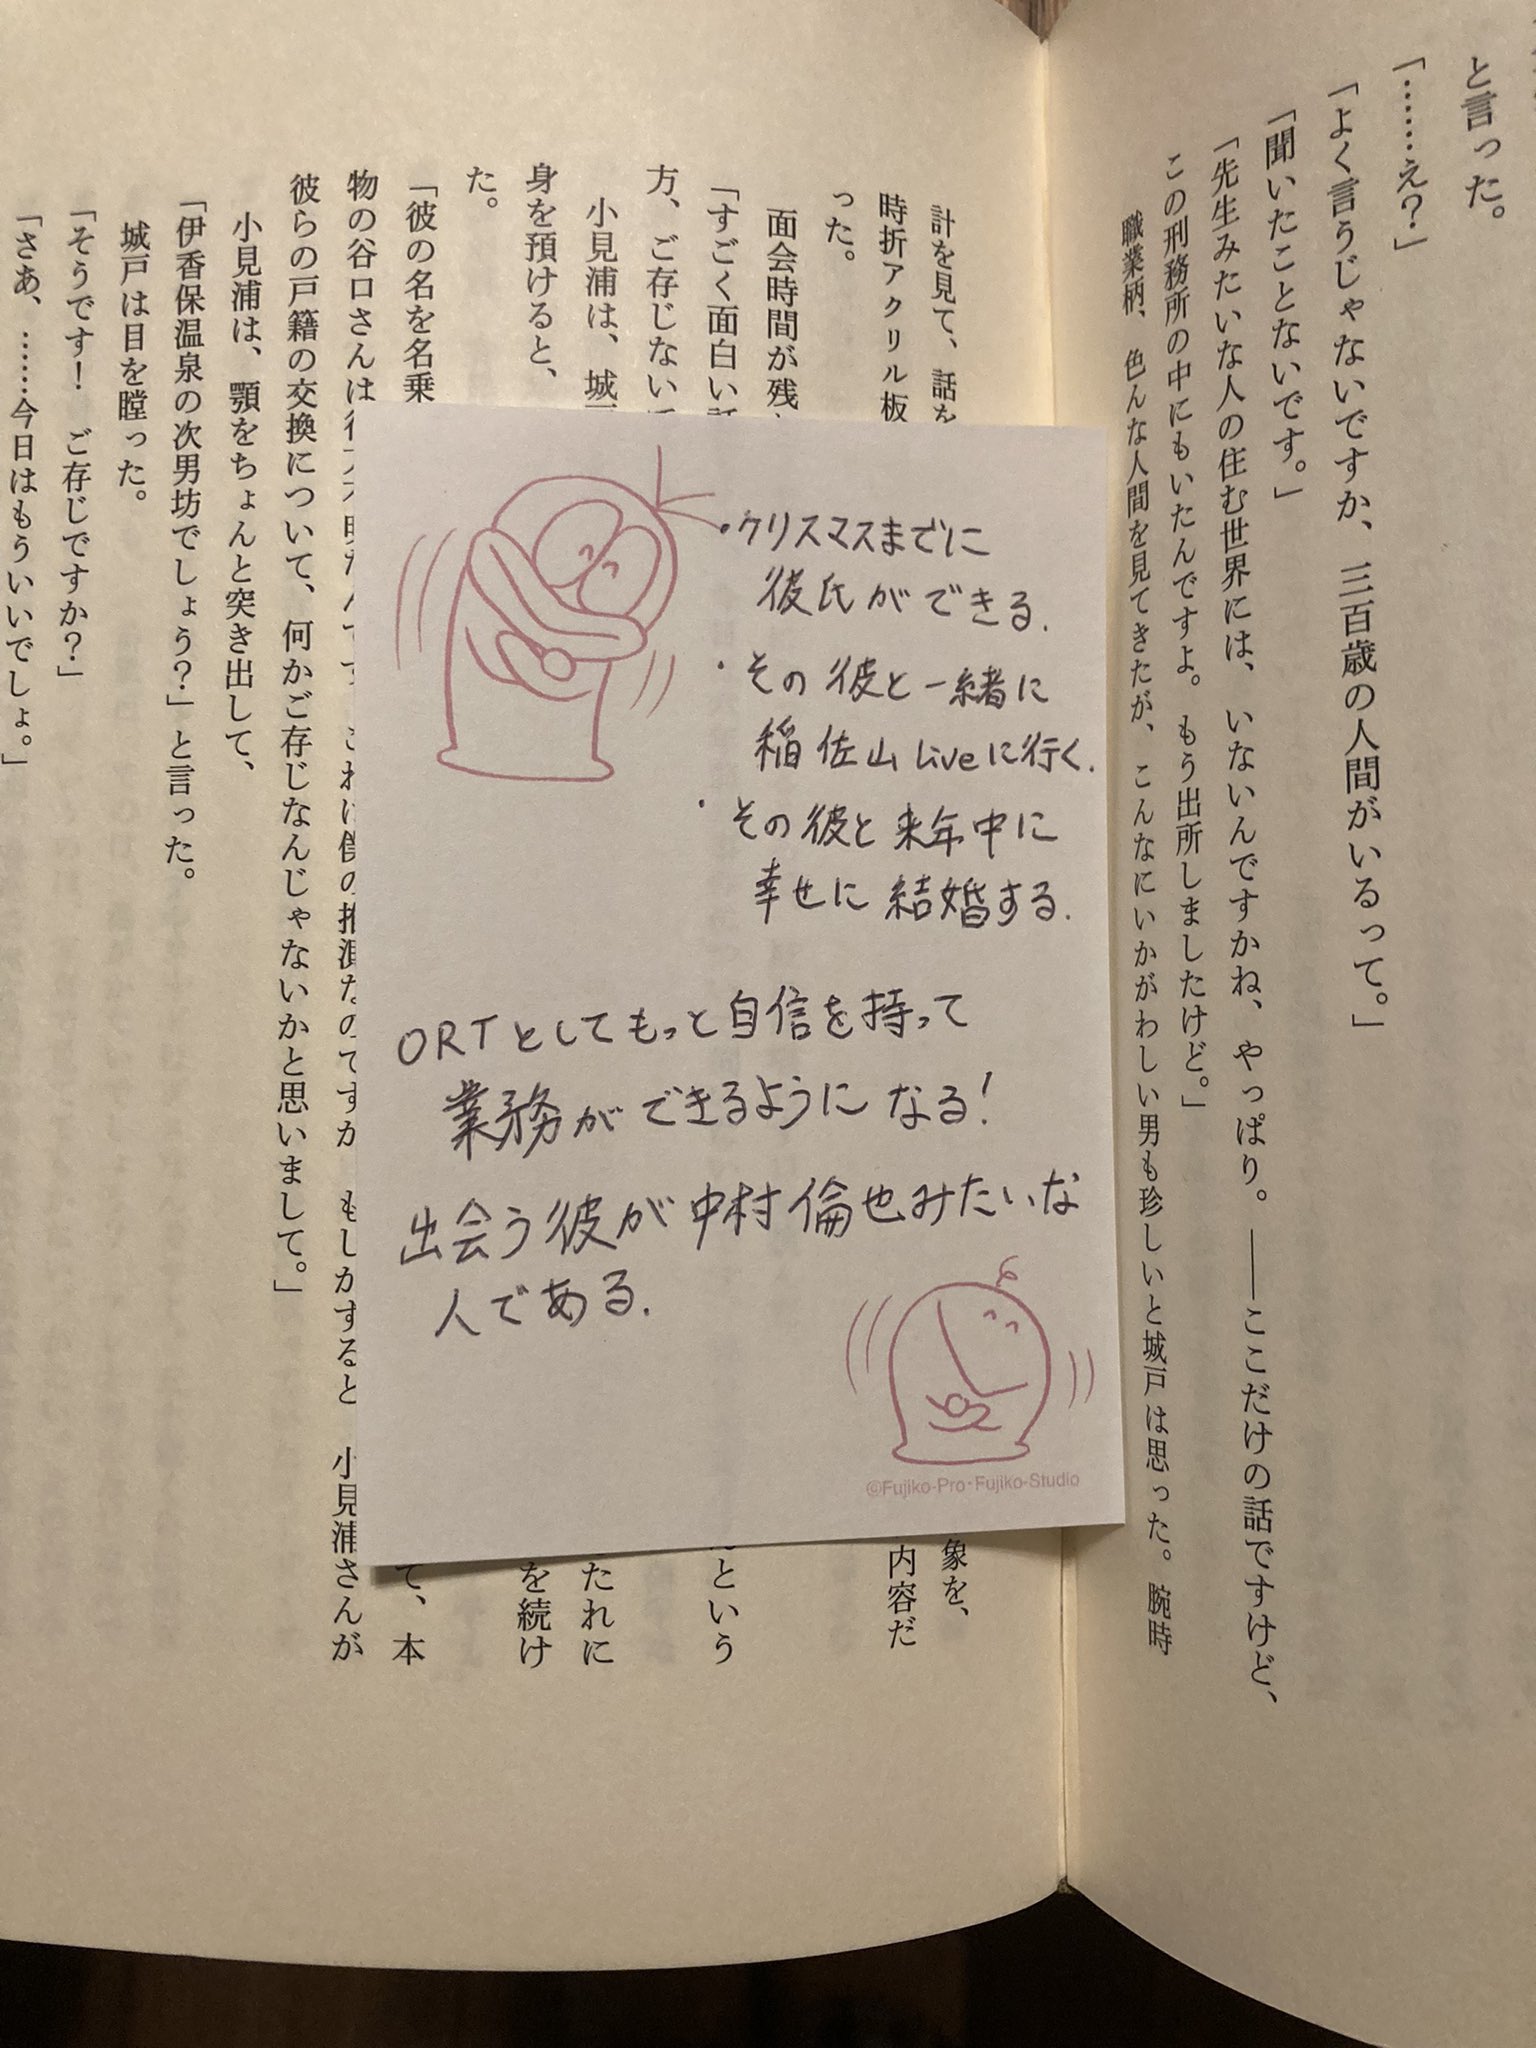 と言った。
「……え？」
「よく言うじゃないですか、三百歳の人間がいるって。」
「聞いたことないです。」
「先生みたいな人の住む世界には、いないんですかね、やっぱり。――ここだけの話ですけど、
この刑務所の中にもいたんですよ。もう出所しましたけど。」
職業柄、色んな人間を見てきたが、こんなにいかがわしい男も珍しいと城戸は思った。腕時
計を見て、話を
象を、
時折アクリル板
内容だ
った。
面会時間が残
「すごく面白い話
という
方、ご存じない
たれに
小見浦は、城戸
を続け
身を預けると、
た。
「彼の名を名乗
て、本
物の谷口さんは
小見浦さんが
彼らの戸籍の交換について、何かご存じなんじゃないかと思いまして。」
小見浦は、顎をちょんと突き出して、
「伊香保温泉の次男坊でしょう？」と言った。
城戸は目を瞠った。
「そうです！　ご存じですか？」
「さあ、……今日はもういいでしょ。」
・クリスマスまでに
彼氏ができる.
・その彼と一緒に
稲佐山Liveに行く.
・その彼と来年中に
幸せに結婚する.
ORTとしてもっと自信を持って
業務ができるようになる!
出会う彼が中村倫也みたいな
人である.
©Fujiko-Pro・Fujiko-Studio